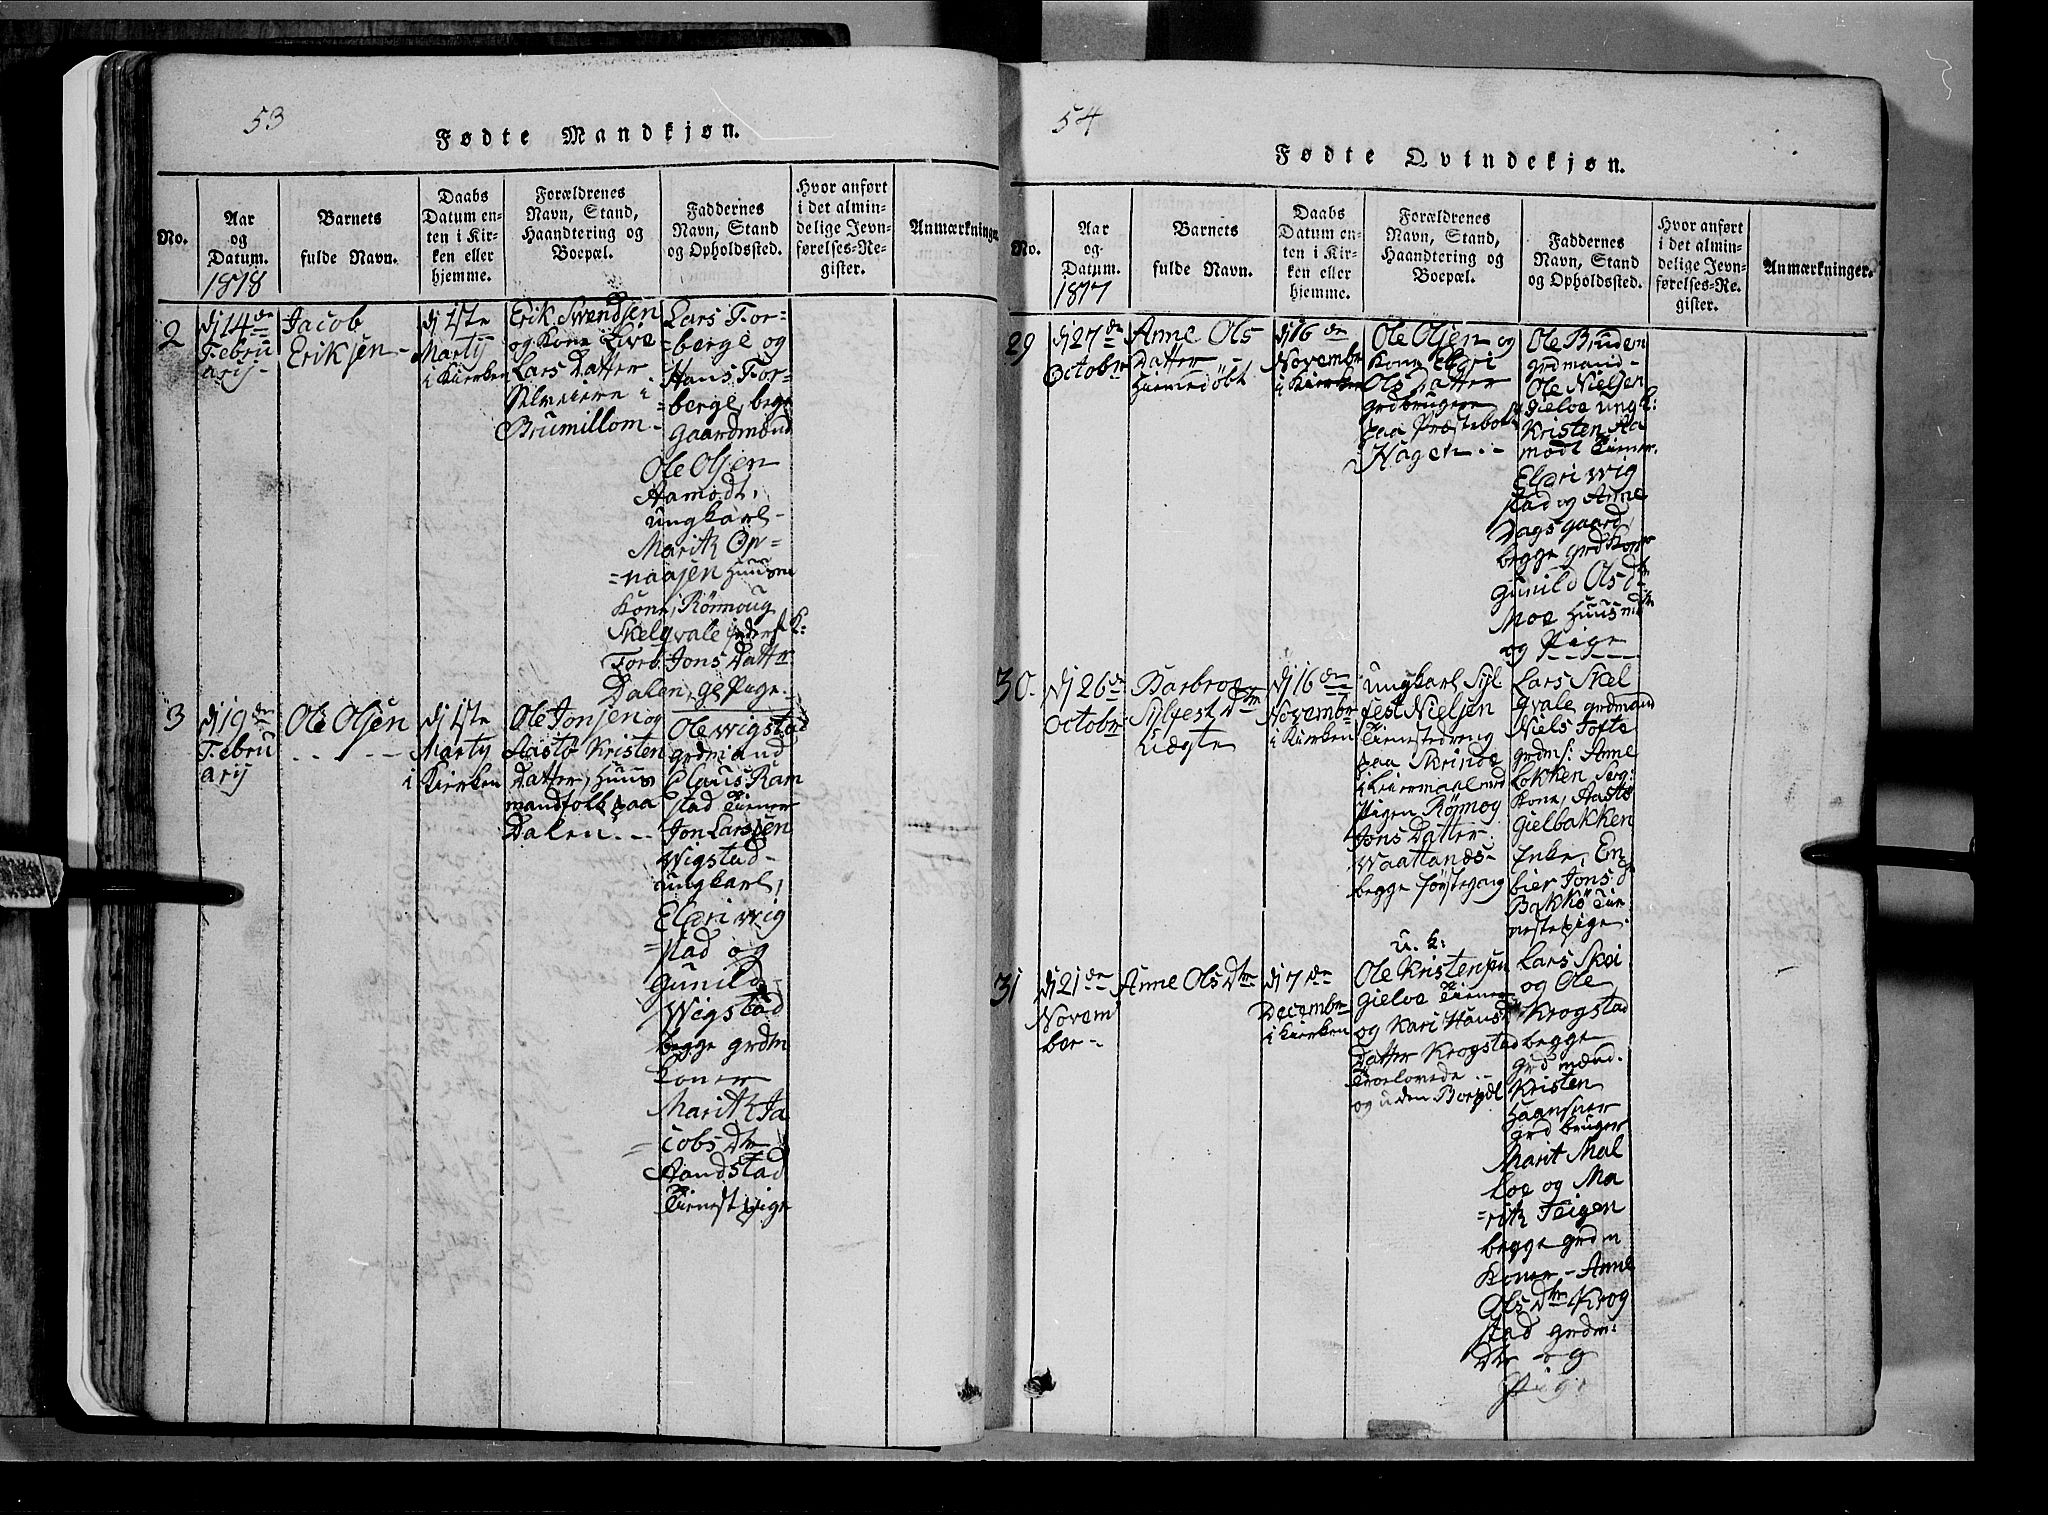 53
Fødte Mandkjøn.
No.
Aar
og
Datum.
1818
Barnets
fulde Navn.
Daabs
Datum en-
ten i Kir-
ken eller
hjemme.
Forældrenes
Navn, Stand,
Haandtering og
Boepæl.
Faddernes
Navn, Stand
og Opholdssted.
Hvor anført
i det almin-
delige Jevn-
førelses-Re-
gister.
Anmærkninger.
2
dj 14de
Febru
arij-
Jacob
Eriksen-
dj 1ste
Martij
i Kierken
Erik Swendsen
og Kone Live
Lars Datter
Selveiere i
Brumillom-
Lars For=
=berge og
Hans For=
=berge, begge
gaardmænd
Ole Olsen
Aamodt,
ungkarl-
Marith Op=
=naasen Huusm
Kone, Rönnoug
Skelqvale
Torb. Jons Datter
Dalen, Pige.
3
dj 19de
Febru
arij
Ole Olsen
dj 1ste
Martij
i Kierken
Ole Jonsen og
Aaste Kristen
Datter, Huus
mandfolk paa
Dalen. --
Ole Wigstad
grdmand
Claus Ram
stad Tiener
Jon Larssen
Wigstad-
ungkarl,
Elæri Wig
=stad og
Gunild
Wigstad
begge grdm
koner
Marith Ja
=cobs Dtr
Aandstad
Tienestpige
54
Fødte Qvindekjøn.
No.
Aar
og
Datum.
1817
Barnets
fulde Navn.
Daabs
Datum en-
ten i Kir-
ken eller
hjemme.
Forældrenes
Navn, Stand,
Haandtering og
Boepæl.
Faddernes
Navn, Stand
og Opholdssted.
Hvor anført
i det almin-
delige Jevn-
førelses-Re-
gister.
Anmærkninger.
29
dj 27de
Octobr
Anne Ols
Datter -
Hiemedöbt
dj 16de
Novembr
i Kierken
Ole Olsen og
Kone Elæri
Ols Datter
grdbrugere
paa Præstebols
Hagen. -
Ole Bruden
grdmand-
Ole Nielsen
Gielve ungk:
Kristen Aa
modt Tiener.
Elæri Wig
stad og Anne
Dagsgaard
begge grdkoner
Gunild Olsdtr
Moe Huusmds
og Pige
30.
dj 26de
Octobr
Barbroe
Sylfest Dtr
Uægte
dj 16de
Novembr
i Kierken
Ungkarl Syl
fest Nielsen
Tienestedreng
paa Skrinde
i Leiermaal med
Pigen Rönnog
Jons Datter
Waatlands-
begge förstegang
Lars Skel
qvale grdmand
Niels Tofte
grdm: Anne
Lökken Serg:
Kone, Aaste
Gielbakken
Enke, Em
bier Jons d
Bakkö Tie
nestepige.
31
dj 21de
Novem
ber-
Anne Ols Dtr
dj 7de
Decembr
i Kierken
u. k:
Ole Kristensen
Gielve Tiener
og Kari Hans
Datter Krogstad
Troelovede -
og uden Boepæl
Lars Skei
og Ole
Krogstad
begge
grdmænd.
Kristen
Haansnar
grdbruger
Marit Mal
loe og Ma
=rith Teigen
begge grdm
koner - Anne
Ols Dtr Krog
stad grdm:
Dtr og
Pige